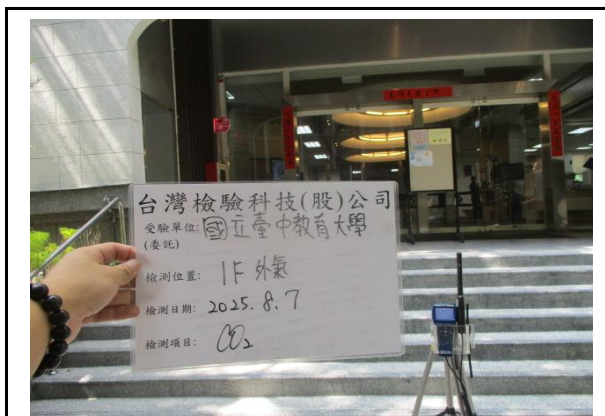 台灣檢驗科技(股)公司
受驗單位: 國立臺中教育大學
(委託)
檢測位置: 1F 外氣
檢測日期: 2025. 8. 7
檢測項目: CO₂